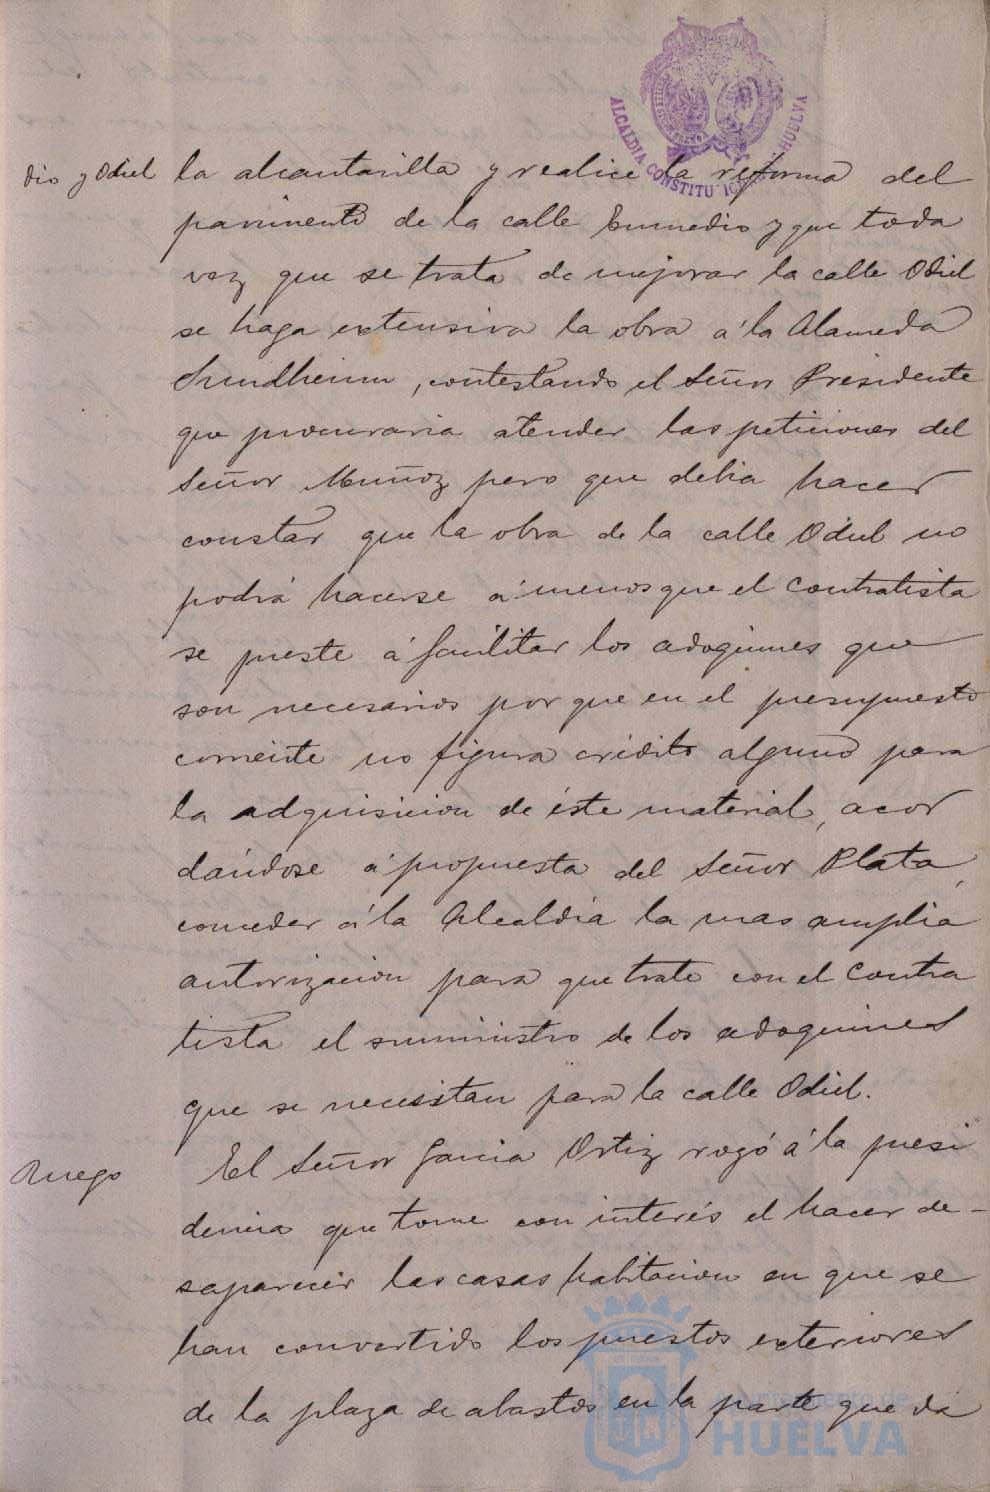 ALCALDIA CONSTITUCIONAL HUELVA
dio y Odiel
la alcantarilla y realice la reforma del
pavimento de la calle Enmedio y que toda
vez que se trata de mejorar la calle Odiel
se haga extensiva la obra á la Alameda
Sundheim, contestando el Señor Presidente
que procuraria atender las peticiones del
Señor Muñoz pero que debia hacer
constar que la obra de la calle Odiel no
podrá hacerse á menos que el contratista
se preste á facilitar los adoquines que
son necesarios por que en el presupuesto
corriente no figura crédito alguno para
la adquisicion de éste material, acor
dándose á propuesta del Señor Plata,
conceder á la Alcaldia la mas amplia
autorizacion para que trate con el Contra
tista el suministro de los adoquines
que se necesitan para la calle Odiel.
Ruego
El Señor Garcia Ortiz rogó á la presi
dencia que tome con interés el hacer de-
saparecer las casas habitacion en que se
han convertido los puestos exteriores
de la plaza de abastos en la parte que da
Ayuntamiento de
HUELVA